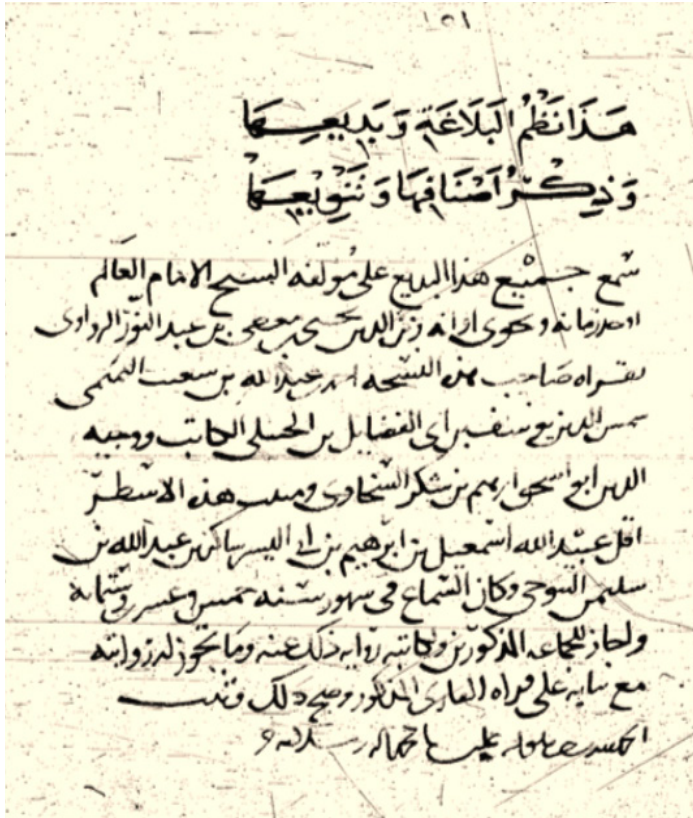 ١٥١
هَذَا نَظْمُ البَلَاغَةِ وَبَدِيعِهَا
وَذِكْرُ أَصْنَافِهَا وَتَنْوِيعِهَا
سمع جميع هذا البديع على مؤلفه الشيخ الامام العالم
اوحد زمانه ونحوى اوانه زين الدين يحيى بن معطى بن عبد النور الزواوى
بقراه صاحب هذه النسخه عبد الله بن
شمس الدين ابى الفضايل بن الحنبلى الكاتب ووجيه
الدين ابو اسحق ابرهيم بن شكر السخاوى ومثبت هذه الاسطر
اقل عبيد الله اسمعيل بن ابرهيم بن ابى اليسر شاكر بن عبد الله بن
سليمن التنوخى وكان السماع فى شهور سنه خمس وعشرين وستمايه
واجاز للجماعه المذكورين وكاتبه روايه ذلك عنه وما تجوز له روايته
مع ثباته على قراه القارى المذكور وصح ذلك وثبت